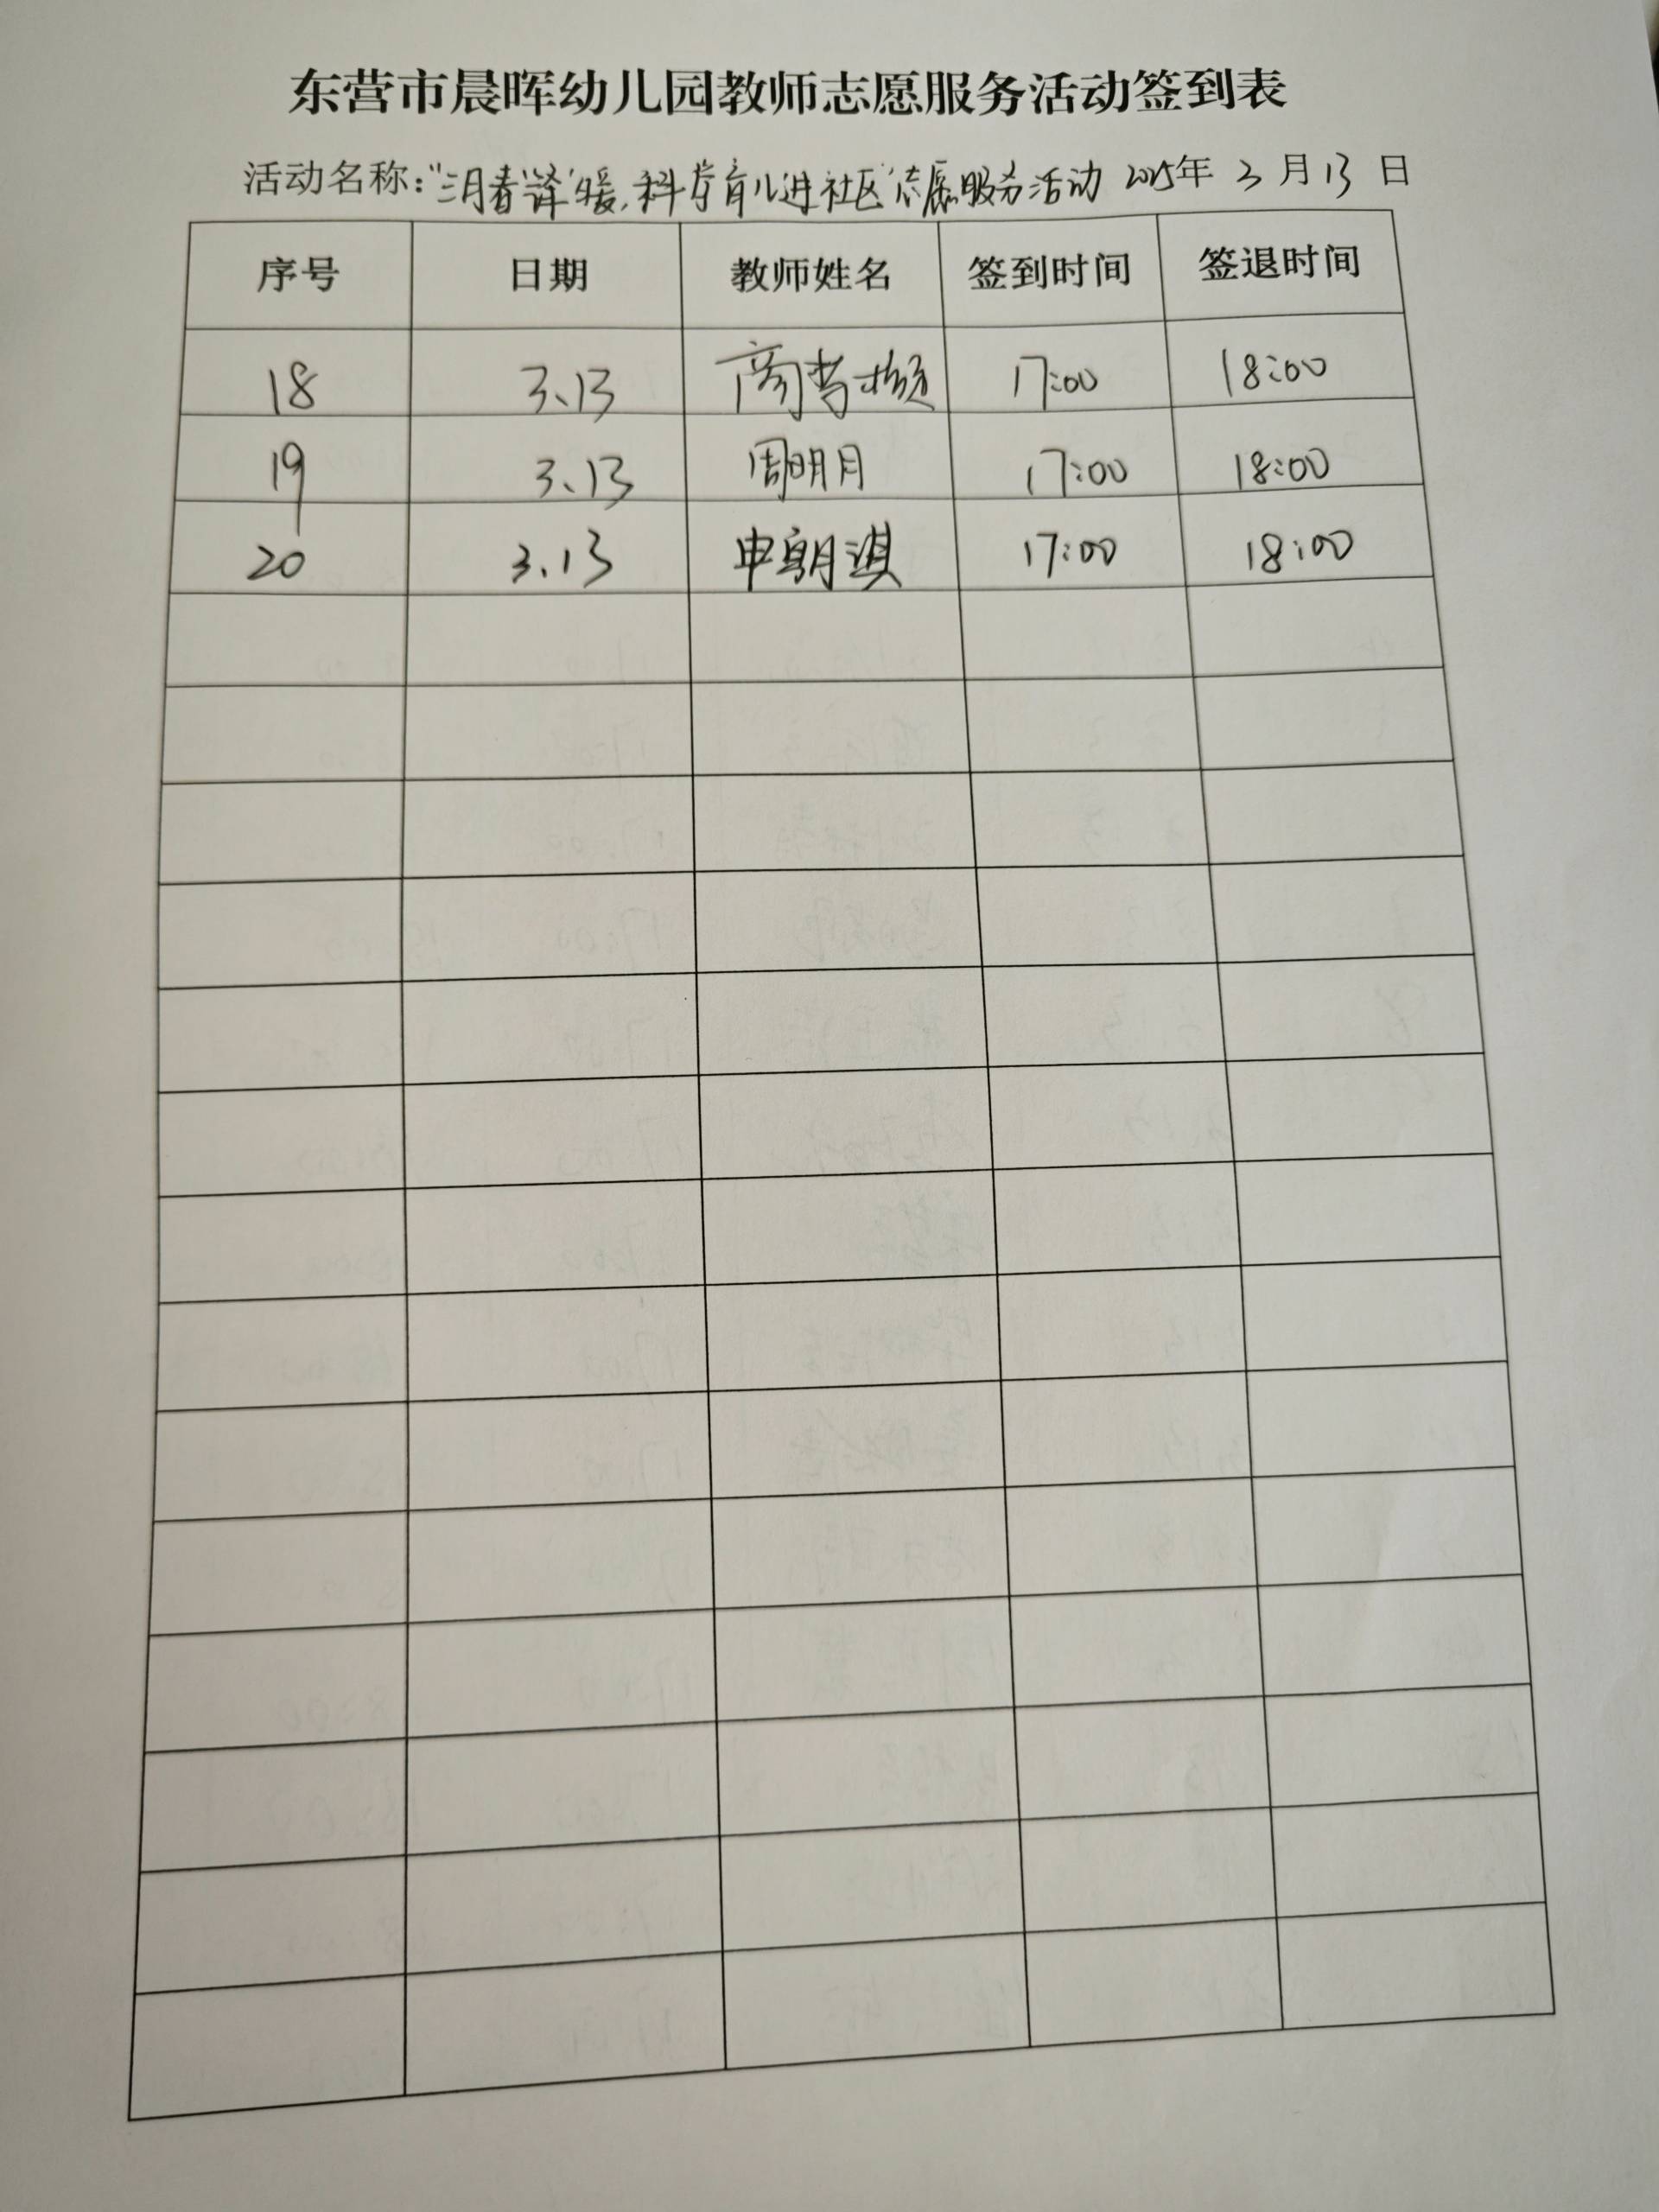 东营市晨晖幼儿园教师志愿服务活动签到表
活动名称:"三月春'译'暖,科学育儿进社区"志愿服务活动 2025年 3 月 13 日
序号 日期 教师姓名 签到时间 签退时间
18 3、13 商 17:00 18:00
19 3、13 周明月 17:00 18:00
20 3.13 申朝淇 17:00 18:00